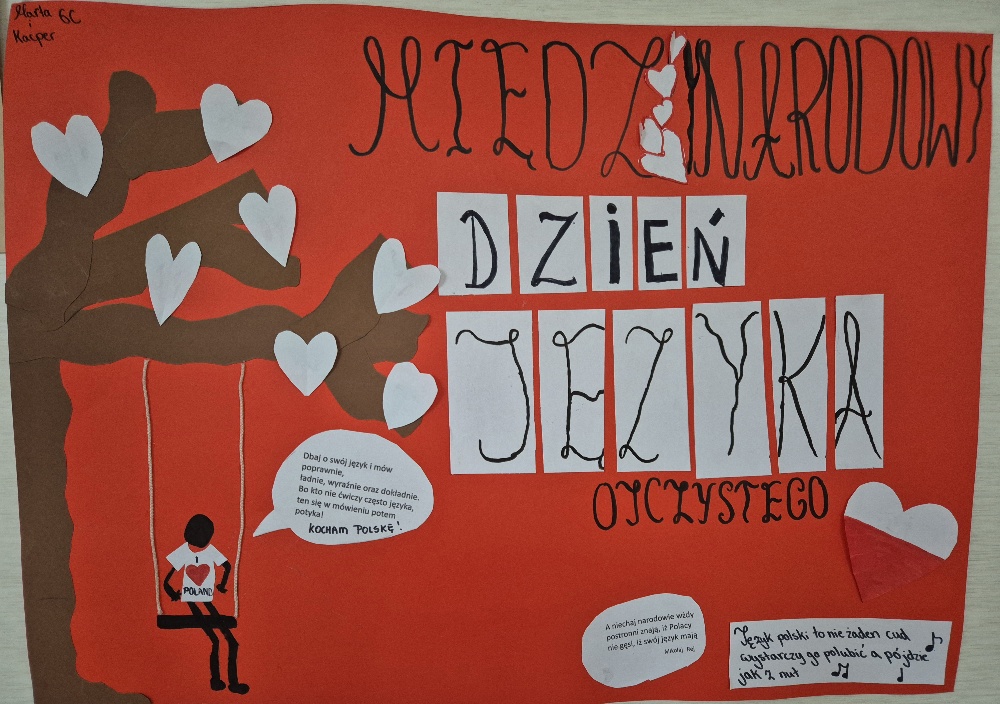 Marta 6C
i
Kacper
MIEDZYNARODOWY
DZIEŃ
JĘZYKA
OJCZYSTEGO
Dbaj o swój język i mów
poprawnie,
ładnie, wyraźnie oraz dokładnie.
Bo kto nie ćwiczy często języka,
ten się w mówieniu potem
potyka!
KOCHAM POLSKĘ!
I
POLAND
A niechaj narodowie wżdy
postronni znają, iż Polacy
nie gęsi, iż swój język mają
Mikołaj Rej
Język polski to nie żaden cud
wystarczy go polubić a pójdzie
jak z nut